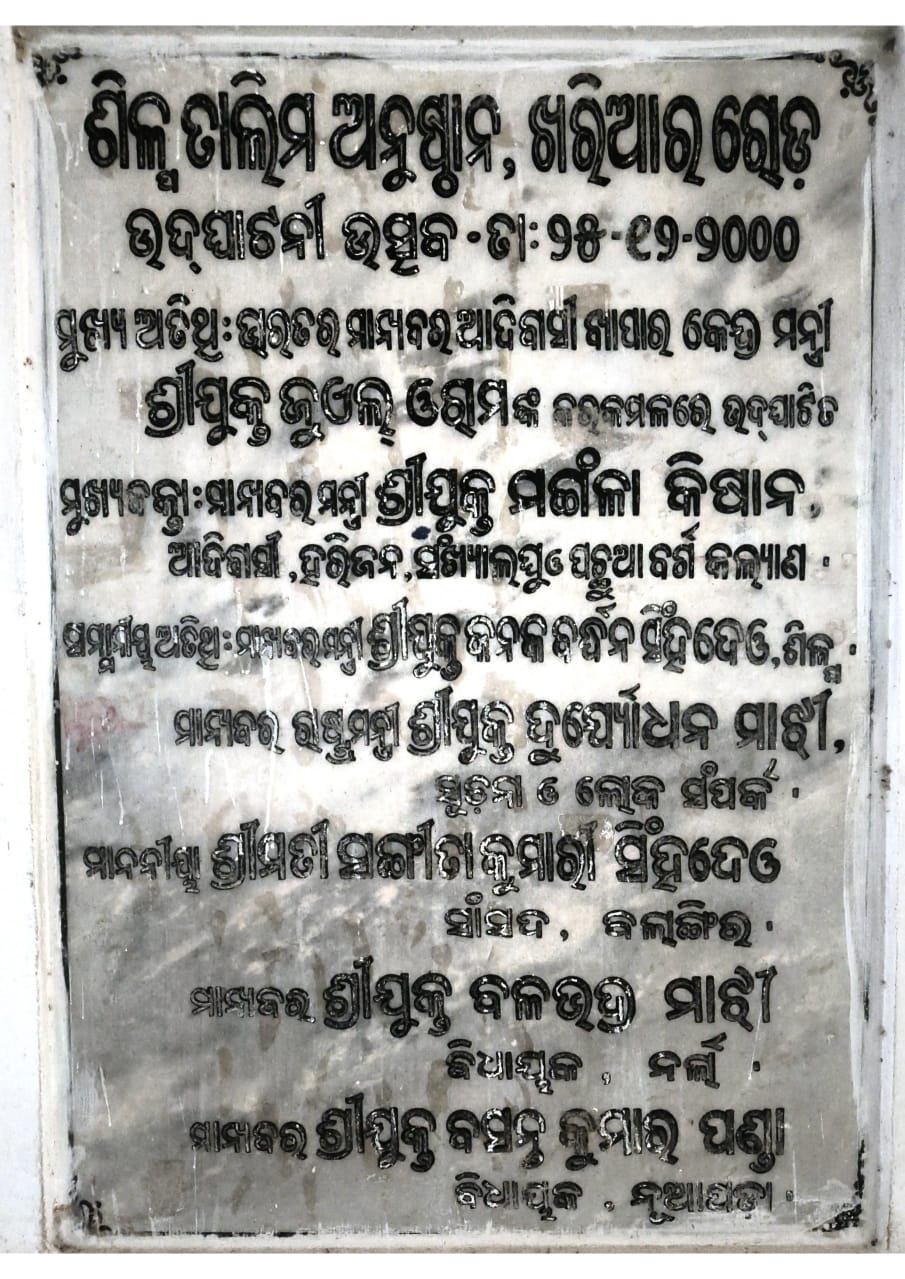 ଶିଳ୍ପ ତାଲିମ ଅନୁଷ୍ଠାନ, ଖରିଆର ରୋଡ଼
ଉଦ୍‌ଘାଟନୀ ଉତ୍ସବ - ତା: ୨୫-୧୨-୨୦୦୦
ମୁଖ୍ୟ ଅତିଥି: ଭାରତର ମାନ୍ୟବର ଆଦିବାସୀ ବ୍ୟାପାର କେନ୍ଦ୍ର ମନ୍ତ୍ରୀ
ଶ୍ରୀଯୁକ୍ତ ଜୁଏଲ୍ ଓରାମଙ୍କ କରକମଳରେ ଉଦ୍‌ଘାଟିତ
ମୁଖ୍ୟବକ୍ତା: ମାନ୍ୟବର ମନ୍ତ୍ରୀ ଶ୍ରୀଯୁକ୍ତ ମଙ୍ଗଳା କିଷାନ,
ଆଦିବାସୀ, ହରିଜନ, ସଂଖ୍ୟାଲଘୁ ଓ ପଛୁଆ ବର୍ଗ କଲ୍ୟାଣ ·
ସମ୍ମାନୀୟ ଅତିଥି: ମାନ୍ୟବର ମନ୍ତ୍ରୀ ଶ୍ରୀଯୁକ୍ତ କନକ ବର୍ଦ୍ଧନ ସିଂହଦେଓ, ଶିଳ୍ପ ·
ମାନ୍ୟବର ରାଷ୍ଟ୍ରମନ୍ତ୍ରୀ ଶ୍ରୀଯୁକ୍ତ ଦୁର୍ଯ୍ୟୋଧନ ମାଝୀ,
ସୂଚନା ଓ ଲୋକ ସଂପର୍କ ·
ମାନନୀୟା ଶ୍ରୀମତୀ ସଙ୍ଗୀତା କୁମାରୀ ସିଂହଦେଓ
ସାଂସଦ, ବଲାଙ୍ଗିର ·
ମାନ୍ୟବର ଶ୍ରୀଯୁକ୍ତ ବଳଭଦ୍ର ମାଝୀ
ବିଧାୟକ, ନର୍ଲା ·
ମାନ୍ୟବର ଶ୍ରୀଯୁକ୍ତ ବସନ୍ତ କୁମାର ପଣ୍ଡା
ବିଧାୟକ, ନୂଆପଡ଼ା ·